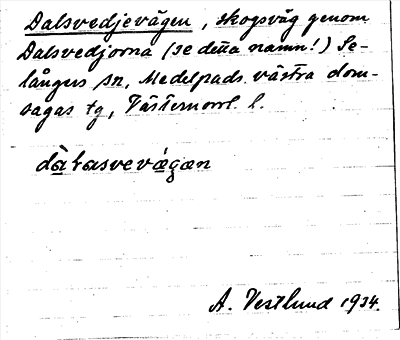 Dalsvedjevägen, skogsväg genom
Dalsvedjorna (se detta namn!) Se-
långers sn, Medelpads västra dom-
sagas tg, Västernorrl. l.
dàɫasvevǻgæn
A. Vestlund 1934.